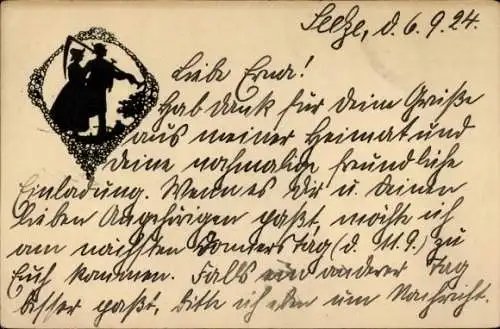 Seelze, d. 6.9.24.
Liebe Erna!
Hab dank für deine Grüße
aus meiner Heimat und
deine nochmalige freundliche
Einladung. Wenn es Dir u. Deinen
lieben Angehörigen paßt, möchte ich
am nächsten Donnerstag (d. 11.9.) zu
Euch kommen. Falls ein anderer Tag
besser paßt, bitte ich um Nachricht.